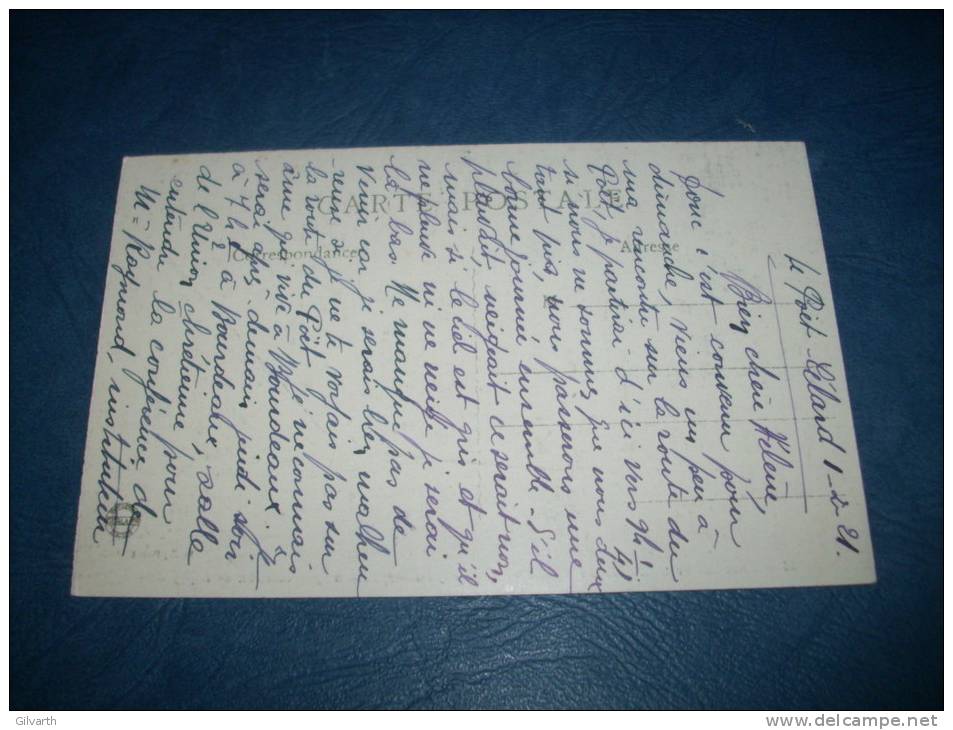 le Poët Célard 1-2-21.
Bien chère Hélène,
Donc c'est convenu pour
dimanche, viens un peu à
ma rencontre sur la route du
Poët, je partirai d'ici vers 9h 1/4
si nous ne sommes que nous deux
tant pis, nous passerons une
bonne journée ensemble. S'il
pleuvait, neigeait ce serait non,
mais si le ciel est gris et qu'il
ne pleuve ni ne neige je serai
là-bas. Ne manque pas de
venir car je serais bien malheu
reuse si je ne te voyais pas sur
la route du Poët
âme qui vive à Bourdeaux. Je
serai après-demain jeudi soir
à 7h 1/2 à Bourdeaux, salle
de l'Union chrétienne pour
entendre la conférence de
M= Raymond, instituteur
CARTE POSTALE
Correspondance
Adresse
Gilvarth
http://www.delcampe.net